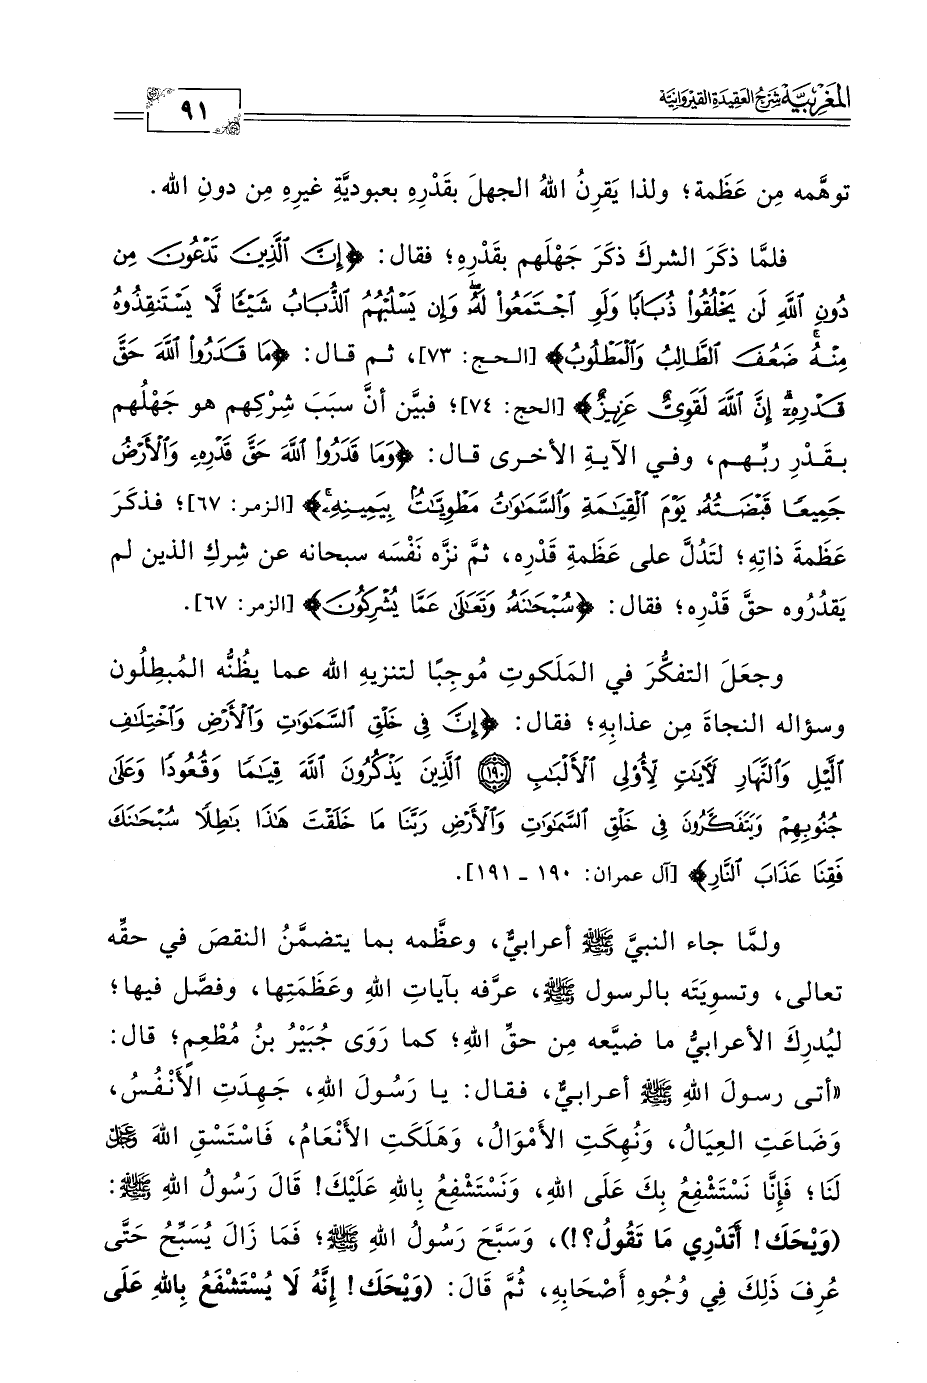 المغربية شرح العقيدة القيروانية
٩١
توهَّمه مِن عَظَمة؛ ولذا يَقرِنُ اللهُ الجهلَ بقَدْرِهِ بعبوديَّةِ غيرِهِ مِن دونِ الله.
فلمَّا ذكَرَ الشركَ ذكَرَ جَهْلَهم بقَدْرِهِ؛ فقال: ﴿إِنَّ ٱلَّذِينَ تَدْعُونَ مِن
دُونِ ٱللَّهِ لَن يَخْلُقُوا۟ ذُبَابًا وَلَوِ ٱجْتَمَعُوا۟ لَهُۥ ۖ وَإِن يَسْلُبْهُمُ ٱلذُّبَابُ شَيْـًٔا لَّا يَسْتَنقِذُوهُ
مِنْهُ ۚ ضَعُفَ ٱلطَّالِبُ وَٱلْمَطْلُوبُ﴾ [الحج: ٧٣]، ثم قال: ﴿مَا قَدَرُوا۟ ٱللَّهَ حَقَّ
قَدْرِهِۦٓ ۗ إِنَّ ٱللَّهَ لَقَوِىٌّ عَزِيزٌ﴾ [الحج: ٧٤]؛ فبيَّن أنَّ سبَبَ شِرْكِهم هو جَهْلُهم
بقَدْرِ ربِّهم، وفي الآيةِ الأخرى قال: ﴿وَمَا قَدَرُوا۟ ٱللَّهَ حَقَّ قَدْرِهِۦ وَٱلْأَرْضُ
جَمِيعًا قَبْضَتُهُۥ يَوْمَ ٱلْقِيَـٰمَةِ وَٱلسَّمَـٰوَٰتُ مَطْوِيَّـٰتٌۢ بِيَمِينِهِۦ ۚ﴾ [الزمر: ٦٧]؛ فذكَرَ
عَظَمةَ ذاتِهِ؛ لتَدُلَّ على عَظَمةِ قَدْرِه، ثمَّ نزَّه نَفْسَه سبحانه عن شِركِ الذين لم
يَقدُرُوه حقَّ قَدْرِه؛ فقال: ﴿سُبْحَـٰنَهُۥ وَتَعَـٰلَىٰ عَمَّا يُشْرِكُونَ﴾ [الزمر: ٦٧].
وجعَلَ التفكُّرَ في المَلَكوتِ مُوجِبًا لتنزيهِ الله عما يظُنُّه المُبطِلُون
وسؤاله النجاةَ مِن عذابِهِ؛ فقال: ﴿إِنَّ فِى خَلْقِ ٱلسَّمَـٰوَٰتِ وَٱلْأَرْضِ وَٱخْتِلَـٰفِ
ٱلَّيْلِ وَٱلنَّهَارِ لَـَٔايَـٰتٍ لِّأُو۟لِى ٱلْأَلْبَـٰبِ ١٩٠ ٱلَّذِينَ يَذْكُرُونَ ٱللَّهَ قِيَـٰمًا وَقُعُودًا وَعَلَىٰ
جُنُوبِهِمْ وَيَتَفَكَّرُونَ فِى خَلْقِ ٱلسَّمَـٰوَٰتِ وَٱلْأَرْضِ رَبَّنَا مَا خَلَقْتَ هَـٰذَا بَـٰطِلًا سُبْحَـٰنَكَ
فَقِنَا عَذَابَ ٱلنَّارِ﴾ [آل عمران: ١٩٠ ـ ١٩١].
ولمَّا جاء النبيَّ ﷺ أعرابيٌّ، وعظَّمه بما يتضمَّنُ النقصَ في حقِّه
تعالى، وتسويَتَه بالرسول ﷺ، عرَّفه بآياتِ اللهِ وعَظَمَتِها، وفصَّل فيها؛
ليُدرِكَ الأعرابيُّ ما ضيَّعه مِن حقِّ اللهِ؛ كما رَوَى جُبَيْرُ بنُ مُطْعِمٍ؛ قال:
«أتى رسولَ اللهِ ﷺ أعرابيٌّ، فقال: يا رَسُولَ اللهِ، جَهِدَتِ الأَنْفُسُ،
وَضَاعَتِ العِيَالُ، وَنُهِكَتِ الأَمْوَالُ، وَهَلَكَتِ الأَنْعَامُ، فَاسْتَسْقِ اللهَ ﷻ
لَنَا؛ فَإِنَّا نَسْتَشْفِعُ بِكَ عَلَى اللهِ، وَنَسْتَشْفِعُ بِاللهِ عَلَيْكَ! قَالَ رَسُولُ اللهِ ﷺ:
(وَيْحَكَ! أَتَدْرِي مَا تَقُولُ؟!)، وَسَبَّحَ رَسُولُ اللهِ ﷺ؛ فَمَا زَالَ يُسَبِّحُ حَتَّى
عُرِفَ ذَلِكَ فِي وُجُوهِ أَصْحَابِهِ، ثُمَّ قَالَ: (وَيْحَكَ! إِنَّهُ لَا يُسْتَشْفَعُ بِاللهِ عَلَى